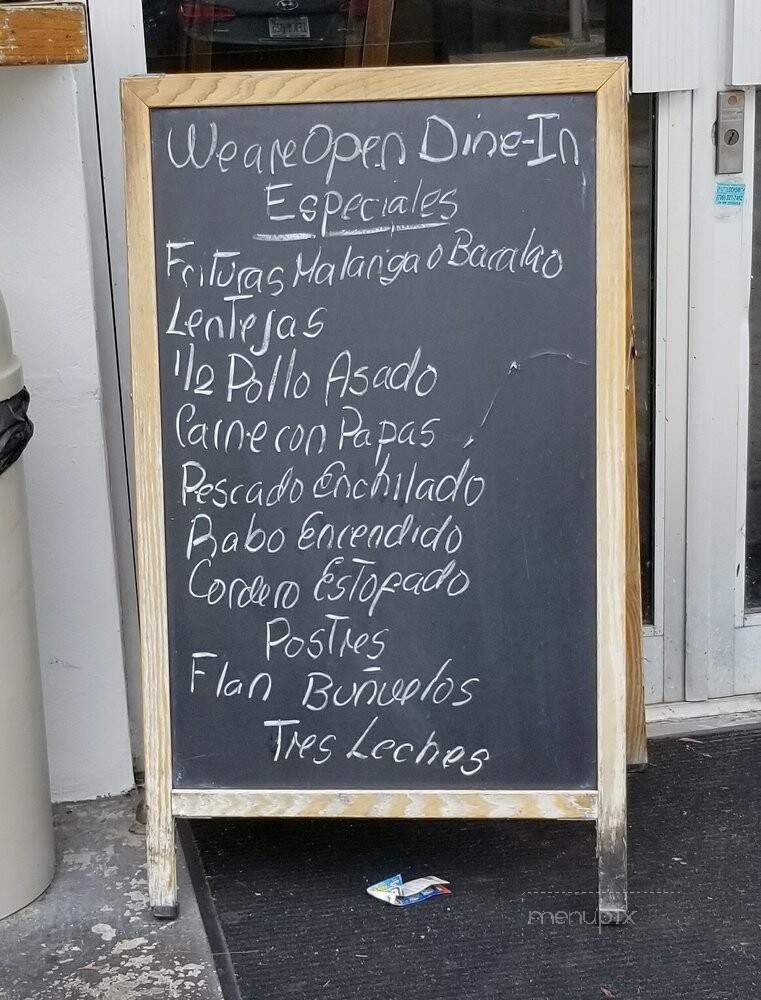 We are Open Dine-In
Especiales
Frituras Malanga o Bacalao
Lentejas
1/2 Pollo Asado
Carne con Papas
Pescado Enchilado
Rabo Encendido
Cordero Estofado
Postres
Flan Buñuelos
Tres Leches
menupix